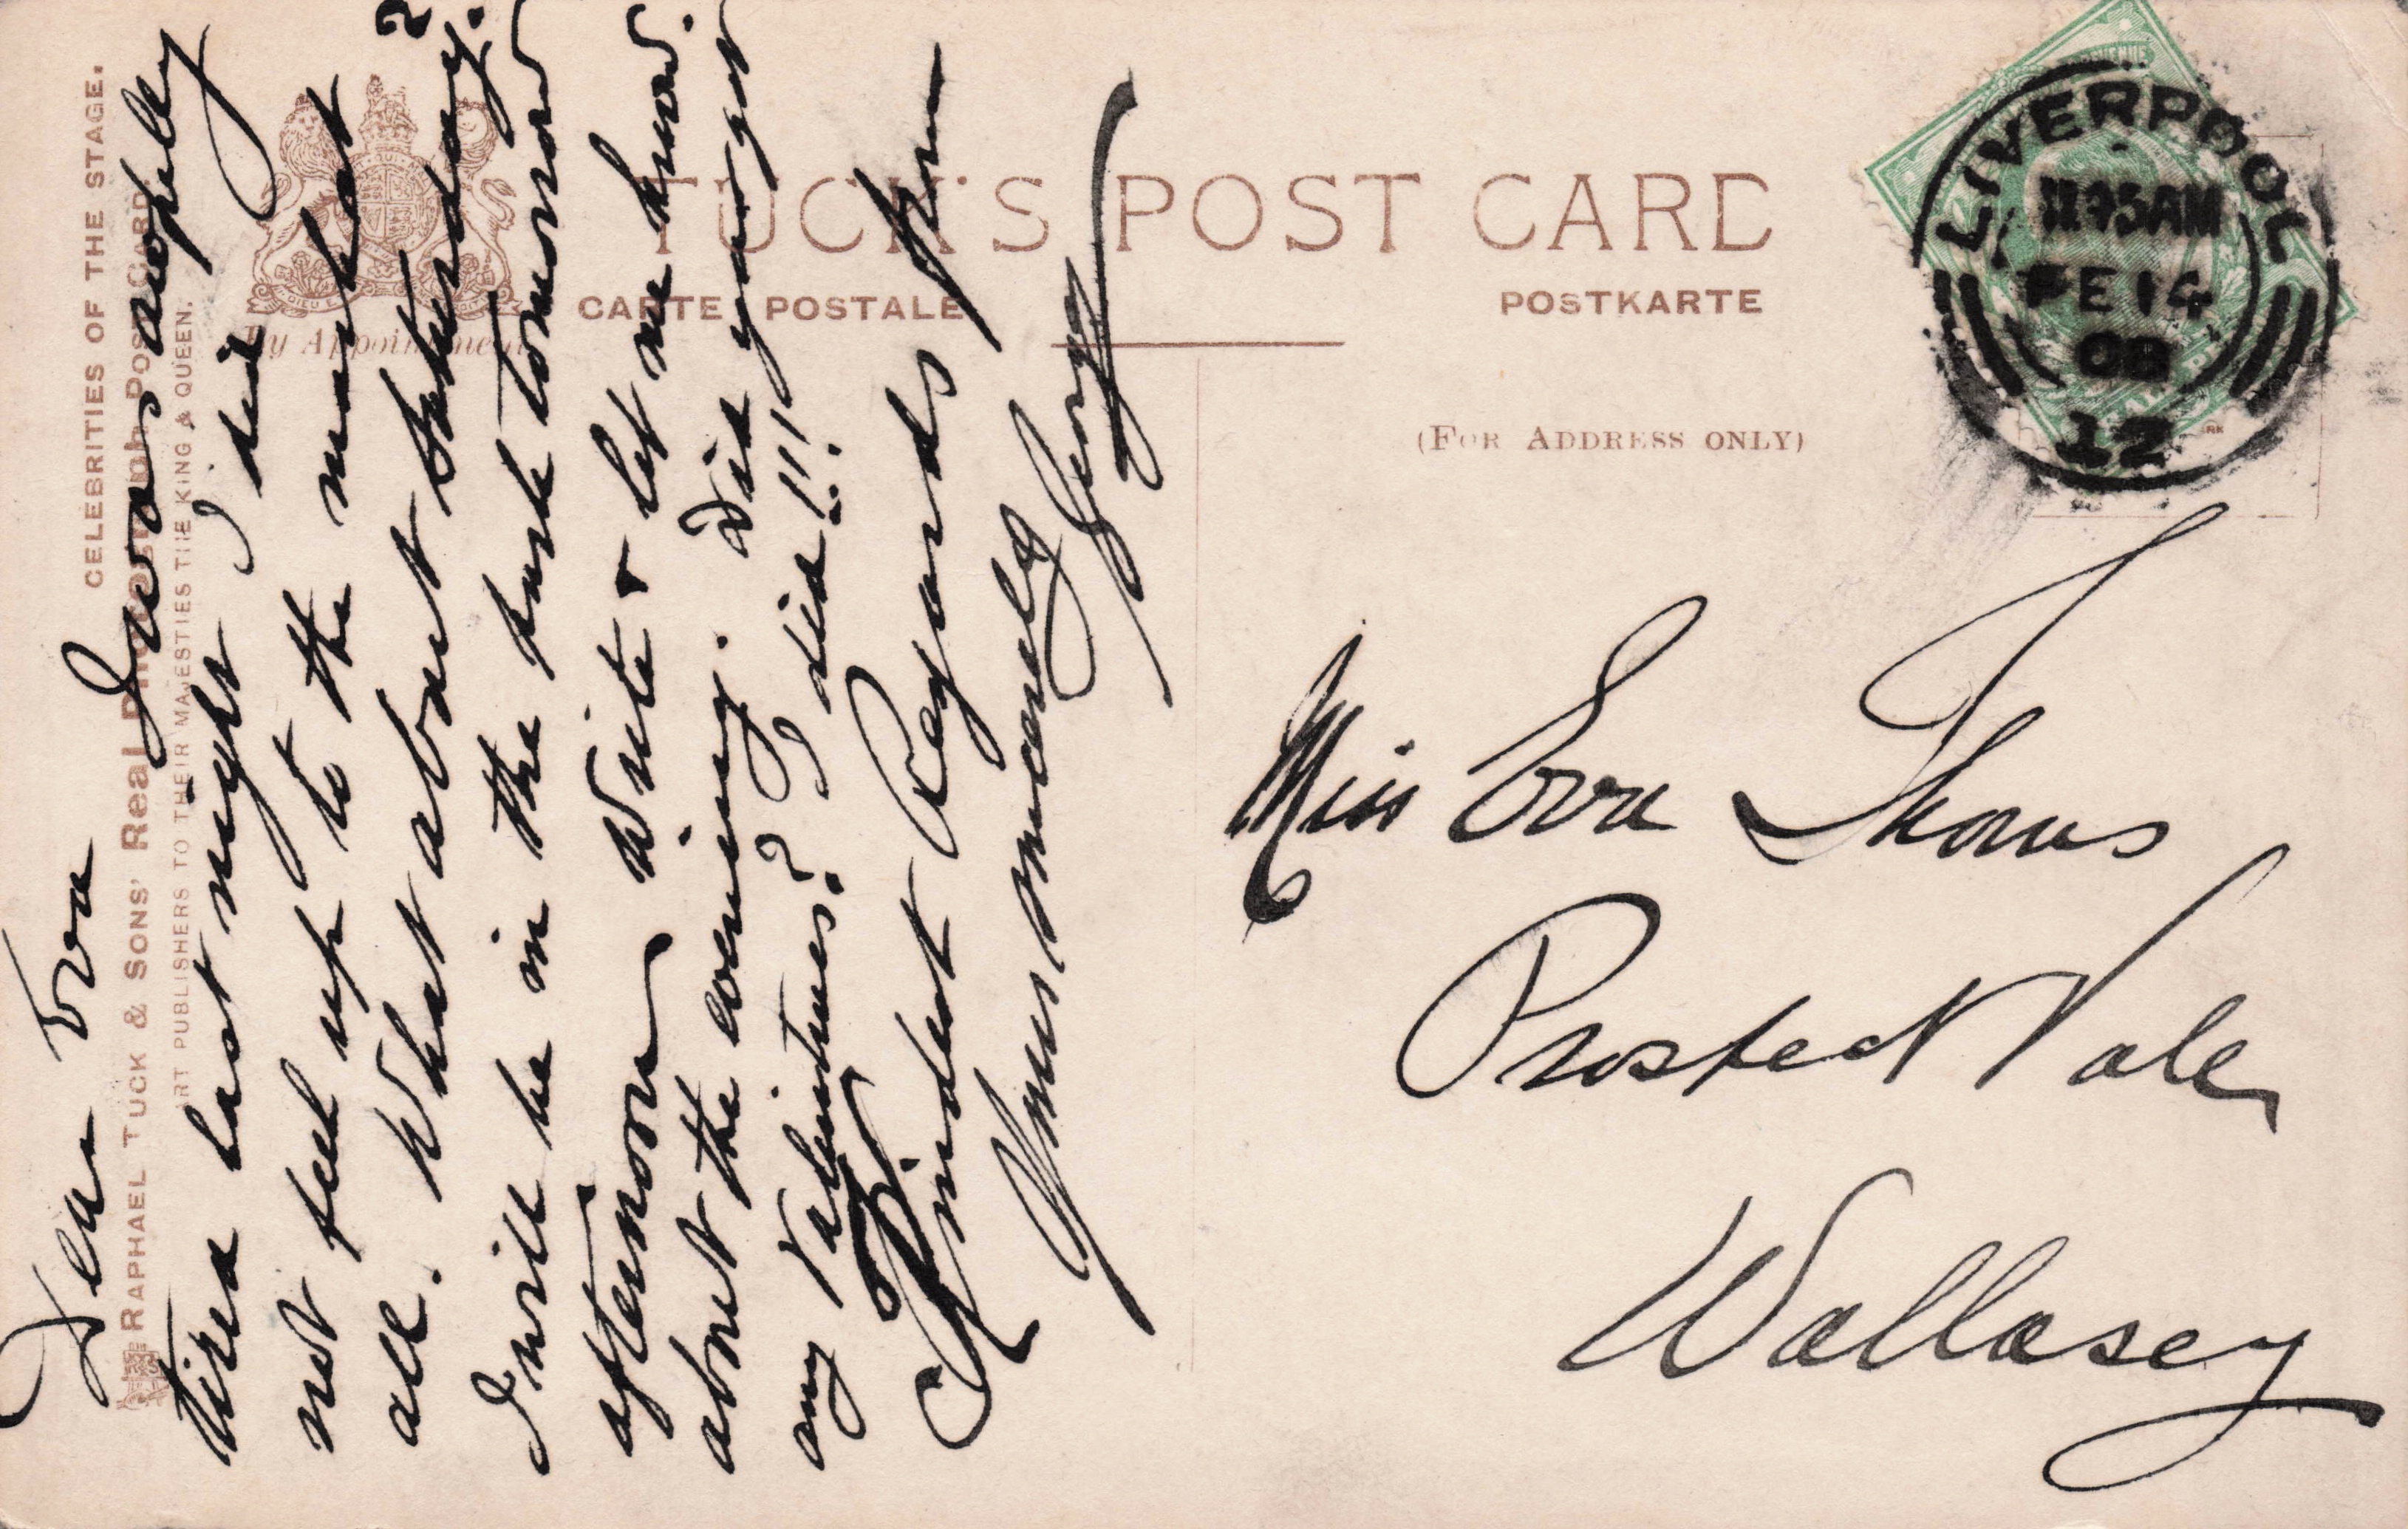 TUCK'S POST CARD
CARTE POSTALE
POSTKARTE
By Appointment
(FOR ADDRESS ONLY)
CELEBRITIES OF THE STAGE.
RAPHAEL TUCK & SONS' Real Photograph POST CARD.
ART PUBLISHERS TO THEIR MAJESTIES THE KING & QUEEN.
LIVERPOOL
AM
FE 14
08
12
Dear Eva I was awfully
tired last night I did
not feel up to the market
all. What about Saturday?
I will be in the park tomorrow
afternoon Write & let me know
about the evening. Did you get
any Valentines? I did!!!
Kindest Regards from
Yours sincerely
George
Miss Eva
Prospect Vale
Wallasey